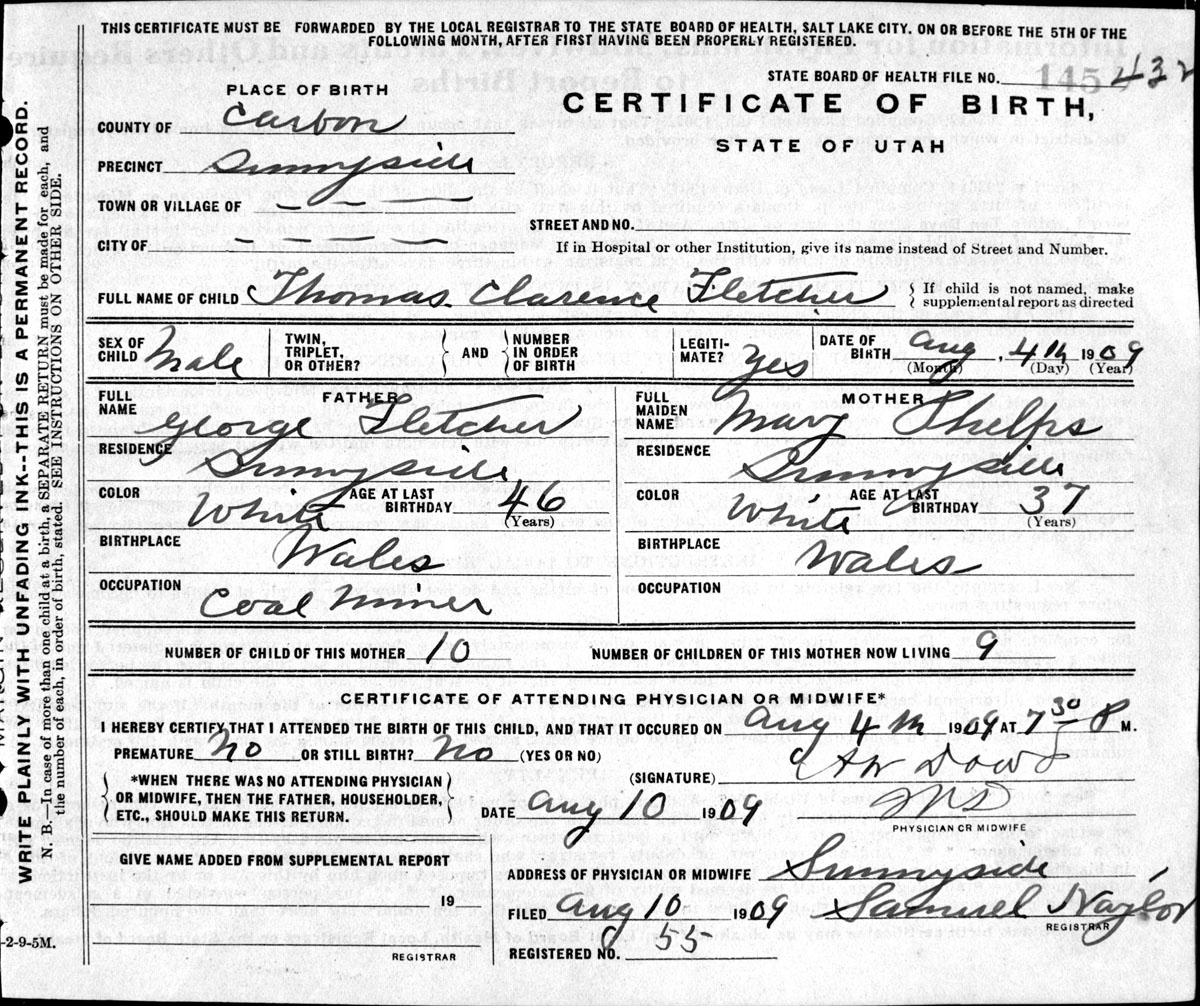 THIS CERTIFICATE MUST BE FORWARDED BY THE LOCAL REGISTRAR TO THE STATE BOARD OF HEALTH, SALT LAKE CITY, ON OR BEFORE THE 5TH OF THE
FOLLOWING MONTH, AFTER FIRST HAVING BEEN PROPERLY REGISTERED.
STATE BOARD OF HEALTH FILE NO. 432
PLACE OF BIRTH
CERTIFICATE OF BIRTH,
STATE OF UTAH
COUNTY OF Carbon
PRECINCT Sunnyside
TOWN OR VILLAGE OF — — — —
STREET AND NO.
CITY OF — —
If in Hospital or other Institution, give its name instead of Street and Number.
FULL NAME OF CHILD Thomas Clarence Fletcher { If child is not named, make
supplemental report as directed
SEX OF CHILD Male TWIN, TRIPLET, OR OTHER? } AND { NUMBER IN ORDER OF BIRTH LEGITI-MATE? Yes DATE OF BIRTH Aug, 4th 1909
(Month) (Day) (Year)
FATHER
FULL NAME George Fletcher
RESIDENCE Sunnyside
COLOR White AGE AT LAST BIRTHDAY 46
(Years)
BIRTHPLACE Wales
OCCUPATION Coal Miner
MOTHER
FULL MAIDEN NAME Mary Phelps
RESIDENCE Sunnyside
COLOR White AGE AT LAST BIRTHDAY 37
(Years)
BIRTHPLACE Wales
OCCUPATION
NUMBER OF CHILD OF THIS MOTHER 10 NUMBER OF CHILDREN OF THIS MOTHER NOW LIVING 9
CERTIFICATE OF ATTENDING PHYSICIAN OR MIDWIFE*
I HEREBY CERTIFY THAT I ATTENDED THE BIRTH OF THIS CHILD, AND THAT IT OCCURED ON Aug 4th 1909 AT 7 30 P M.
PREMATURE No OR STILL BIRTH? No (YES OR NO)
{ *WHEN THERE WAS NO ATTENDING PHYSICIAN
OR MIDWIFE, THEN THE FATHER, HOUSEHOLDER,
ETC., SHOULD MAKE THIS RETURN. }
(SIGNATURE) AW Dowd
DATE Aug 10 1909 MD
PHYSICIAN OR MIDWIFE
GIVE NAME ADDED FROM SUPPLEMENTAL REPORT
19
REGISTRAR
ADDRESS OF PHYSICIAN OR MIDWIFE Sunnyside
FILED Aug 10 1909 Samuel Naylor
REGISTRAR
REGISTERED NO. 55
WRITE PLAINLY WITH UNFADING INK--THIS IS A PERMANENT RECORD.
N. B.—In case of more than one child at a birth, a SEPARATE RETURN must be made for each, and
the number of each, in order of birth, stated. SEE INSTRUCTIONS ON OTHER SIDE.
-2-9-5M.